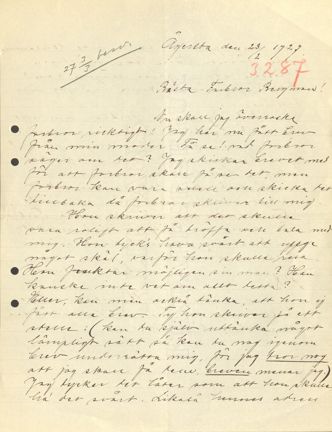 27 3/3 besv.
Ågesta den 23/2 1927.
3287
Bästa Farbror Bergman!
Nu skall jag överraska
farbror, riktigt! Jag har nu fått brev
från min moder. Få se! vad farbror
säger om det? Jag skickar brevet med
för att farbror skall få se det, men
farbror kan vara snäll och skicka det
tillbaka då farbror skriver till mig.
Hon skriver att det skulle
vara roligt att få träffa och tala med
mig. Hon tycks hava svårt att uppge
något skäl, varför hon skulle resa.
Hon fruktar möjligen sin man? Han
kanske inte vet om allt detta?
Eller, kan man också tänka, att hon ej
fått alla brev. Ty hon skriver på ett
ställe: (kan du själv uttänka något
lämpligt sätt så kan du nog igenom
brev underrätta mig, för jag tror nog
att jag skall få dem, breven menar jag)
Jag tycker det låter som att hon skulle
ha det svårt. Likaså hennes adress